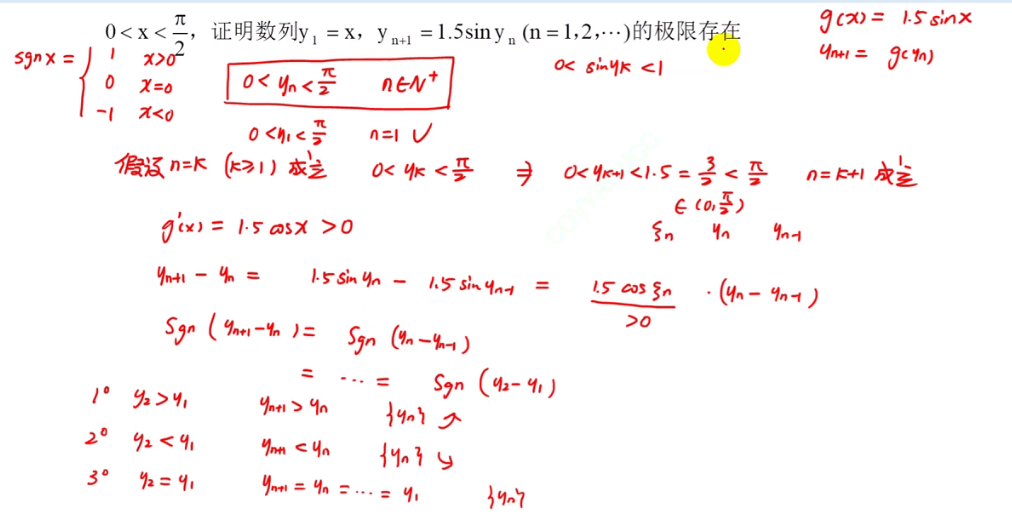 0 < x < π/2，证明数列y₁ = x，yₙ₊₁ = 1.5sin yₙ (n = 1,2,⋯)的极限存在
g(x) = 1.5 sinx
yₙ₊₁ = g(yₙ)
sgn x = { 1 x>0
0 x=0
-1 x<0
0 < yₙ < π/2 n∈N⁺
0 < sin yₖ < 1
0 < y₁ < π/2 n=1 ✓
假设 n=k (k≥1) 成立 0 < yₖ < π/2 ⇒ 0 < yₖ₊₁ < 1.5 = 3/2 < π/2 n=k+1 成立
∈ (0, π/2)
g'(x) = 1.5 cosx > 0
ξₙ yₙ yₙ₋₁
yₙ₊₁ - yₙ = 1.5 sin yₙ - 1.5 sin yₙ₋₁ = 1.5 cos ξₙ · (yₙ - yₙ₋₁)
>0
Sgn (yₙ₊₁ - yₙ) = Sgn (yₙ - yₙ₋₁)
= ⋯ = Sgn (y₂ - y₁)
1° y₂ > y₁ yₙ₊₁ > yₙ {yₙ} ↗
2° y₂ < y₁ yₙ₊₁ < yₙ {yₙ} ↘
3° y₂ = y₁ yₙ₊₁ = yₙ = ⋯ = y₁ {yₙ}